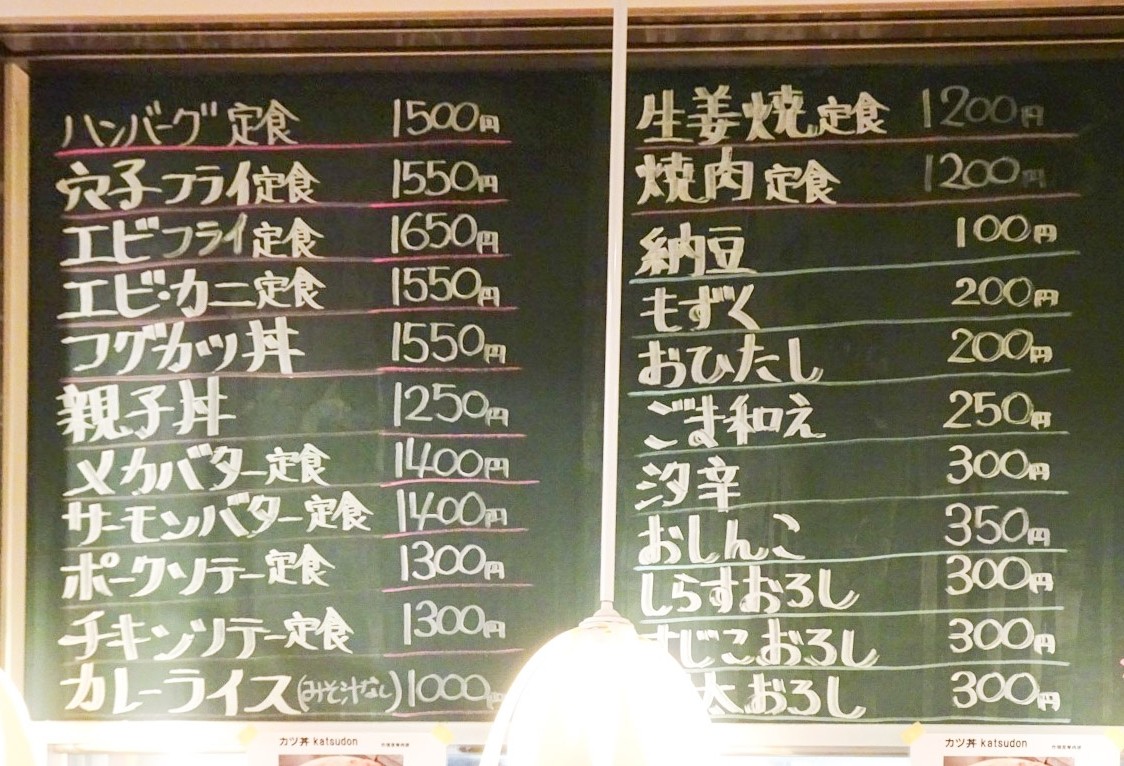 ハンバーグ定食 1500円
穴子フライ定食 1550円
エビフライ定食 1650円
エビ・カニ定食 1550円
フグカツ丼 1550円
親子丼 1250円
メカバター定食 1400円
サーモンバター定食 1400円
ポークソテー定食 1300円
チキンソテー定食 1300円
カレーライス(みそ汁なし) 1000円
生姜焼定食 1200円
焼肉定食 1200円
納豆 100円
もずく 200円
おひたし 200円
ごま和え 250円
汐辛 300円
おしんこ 350円
しらすおろし 300円
じこおろし 300円
太おろし 300円
カツ丼 katsudon
カツ丼 katsudon